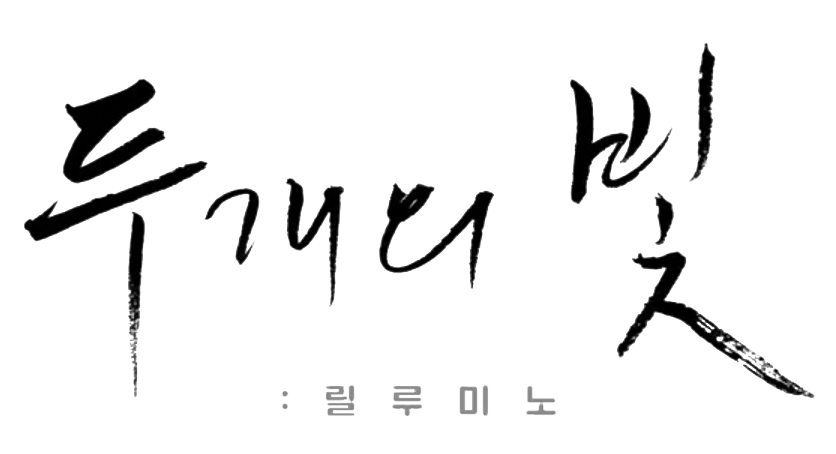 두개의 빛
: 릴루미노